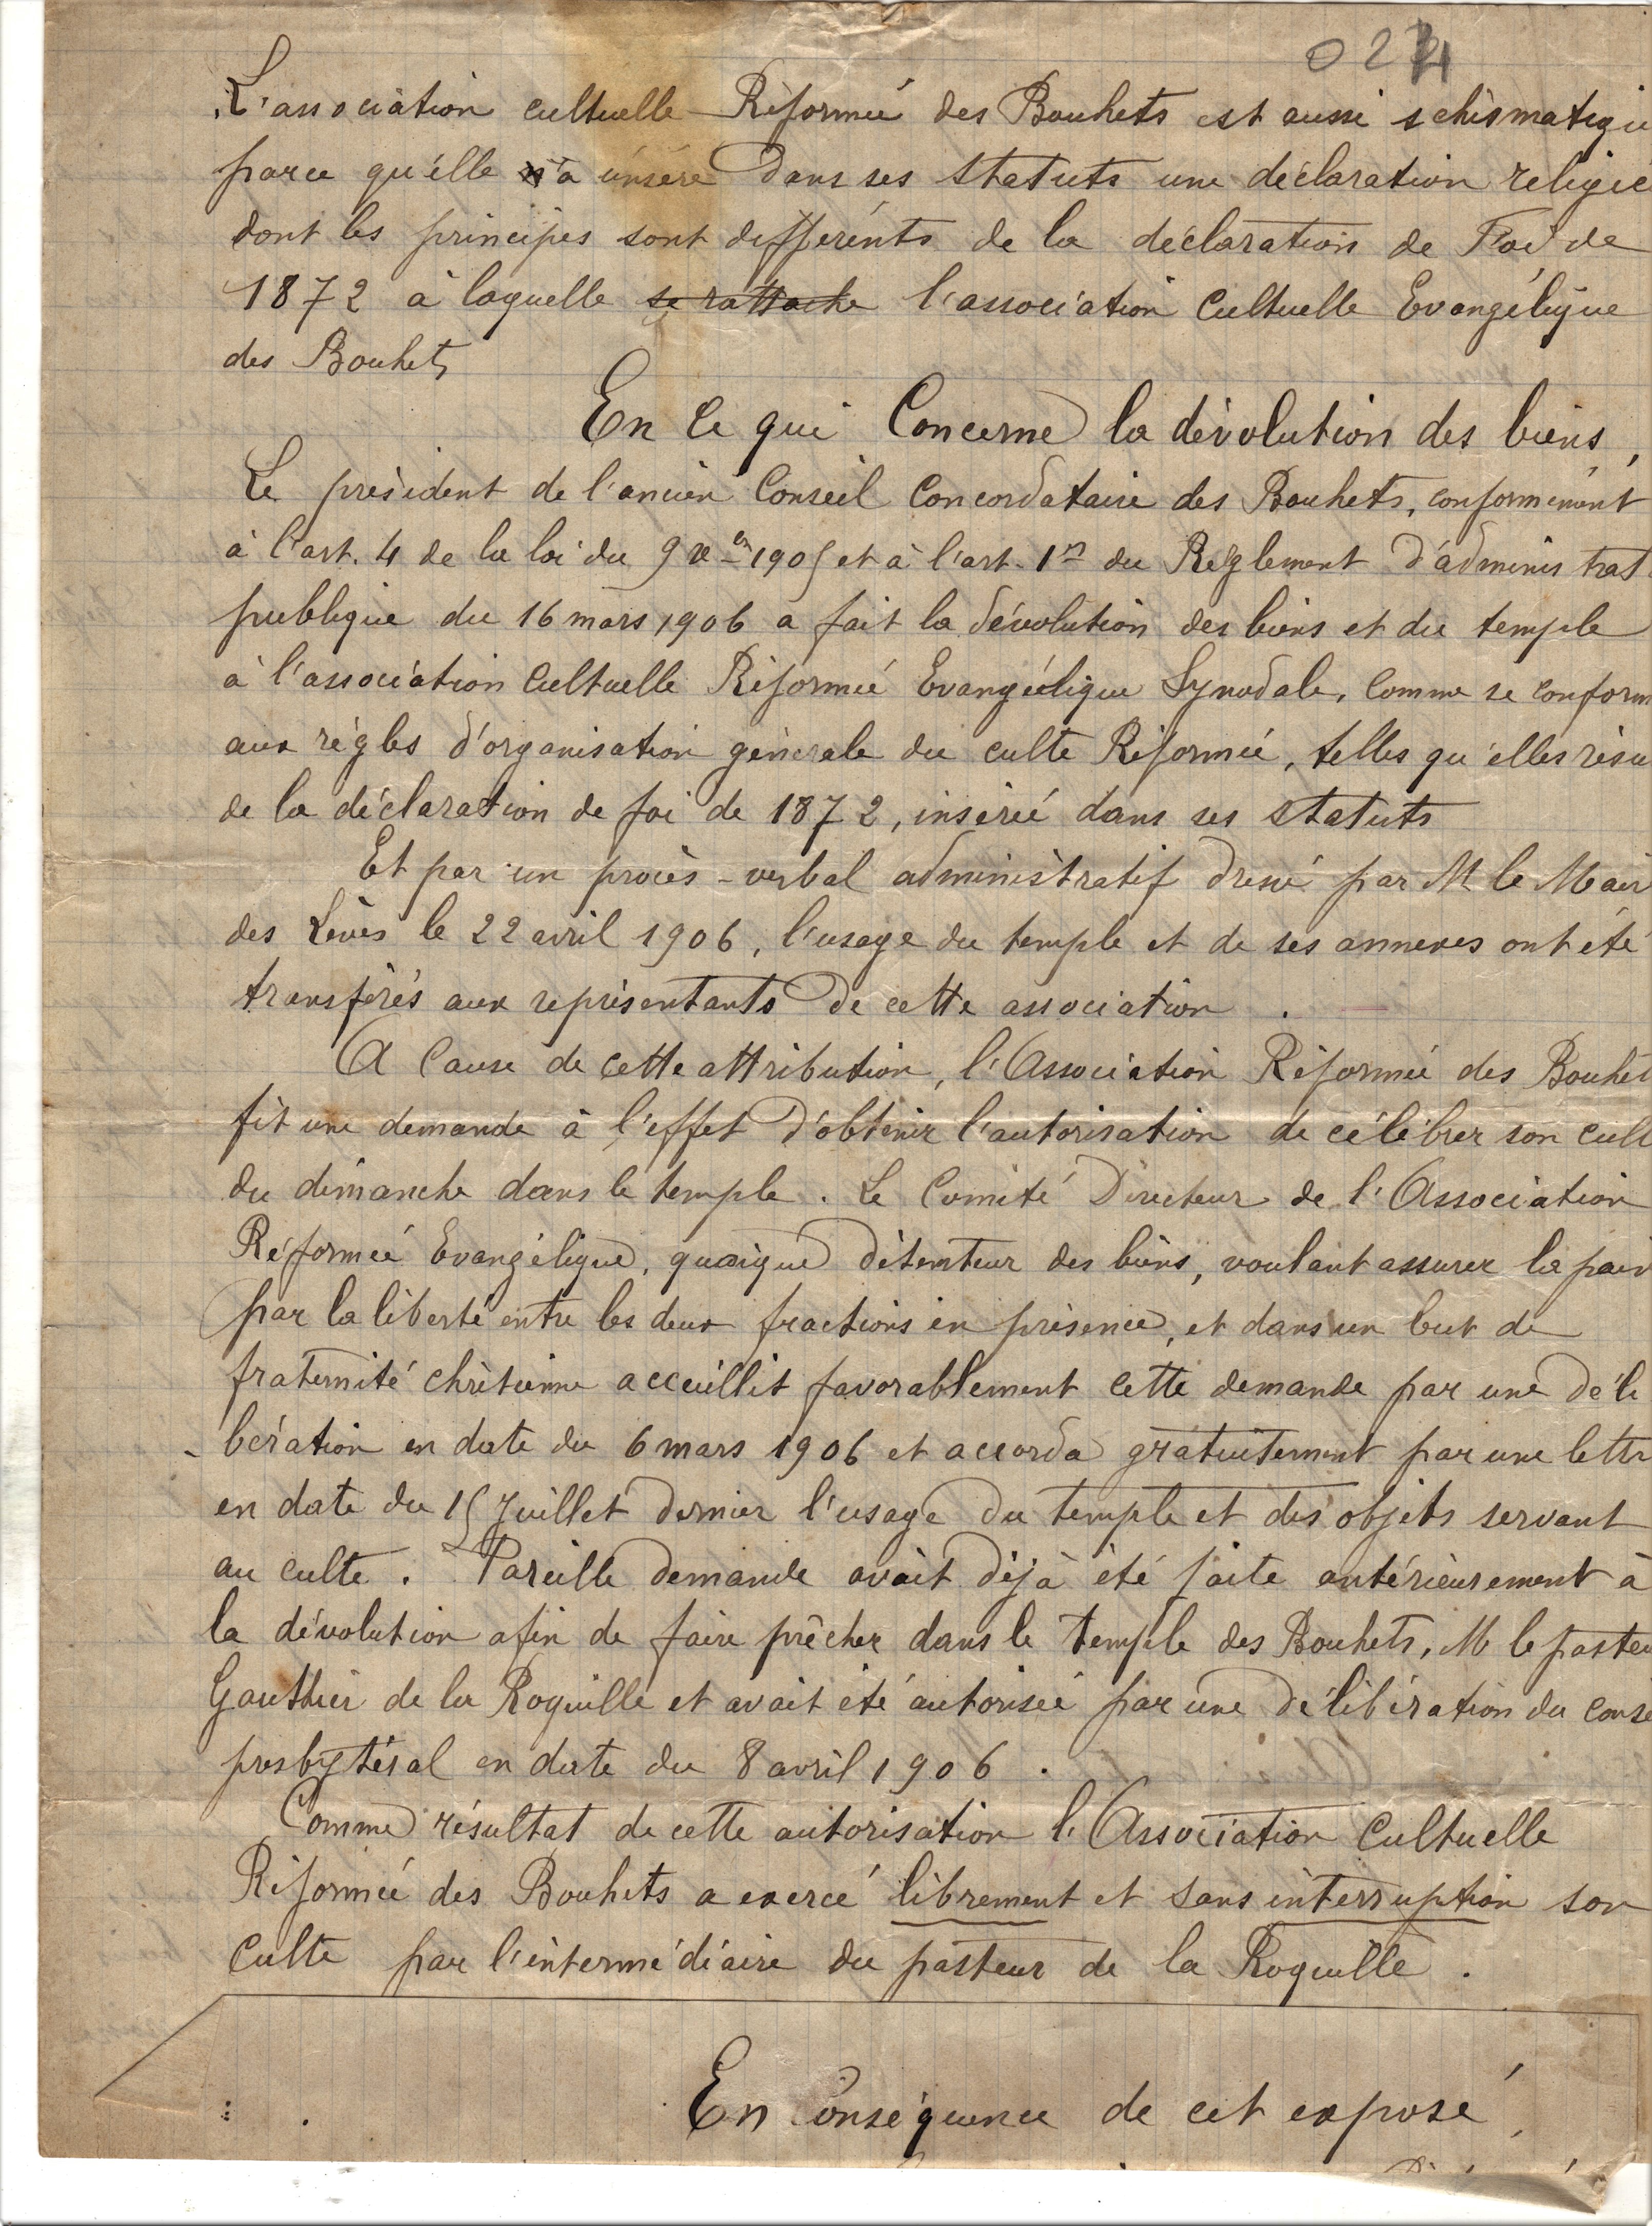 024
L'association cultuelle Réformée des Bouhets est aussi schismatiqu
parce qu'elle a inséré dans ses statuts une déclaration religie
dont les principes sont différents de la déclaration de Foi de
1872 à laquelle se rattache l'association Cultuelle Evangélique
des Bouhets
En Ce qui Concerne la dévolution des biens,
Le président de l'ancien Conseil Concordataire des Bouhets, conformément
à l'art. 4 de la loi du 9 Xbre 1905 et à l'art. 1er du Réglement d'administrat
publique du 16 mars 1906 a fait la dévolution des biens et du temple
à l'association Cultuelle Réformée Evangélique Synodale, Comme se conform
aux règles d'organisation générale du culte Réformé, telles qu'elles résu
de la déclaration de foi de 1872, insérée dans ses statuts
Et par un procès-verbal administratif dressé par M le Mair
des Lèves le 22 avril 1906, l'usage du temple et de ses annexes ont été
transférés aux représentants de cette association.
A Cause de cette attribution, l'Association Réformée des Bouhet
fit une demande à l'effet d'obtenir l'autorisation de célébrer son cult
du dimanche dans le temple. Le Comité Directeur de l'Association
Réformée Evangélique, quoique détenteur des biens, voulant assurer la paix
par la liberté entre les deux fractions en présence, et dans un but de
fraternité chrétienne accueillit favorablement cette demande par une déli
-bération en date du 6 mars 1906 et accorda gratuitement par une lettr
en date du 15 Juillet dernier l'usage du temple et des objets servant
au culte. Pareille demande avait déjà été faite antérieurement à
la dévolution afin de faire prêcher dans le temple des Bouhets, M le paste
Gauthier de la Roquille et avait été autorisée par une délibération du conse
presbytéral en date du 8 avril 1906.
Comme résultat de cette autorisation l'Association Cultuelle
Réformée des Bouhets a exercé librement et sans interruption son
Culte par l'intermédiaire du pasteur de la Roquille.
En Conséquence de cet exposé,